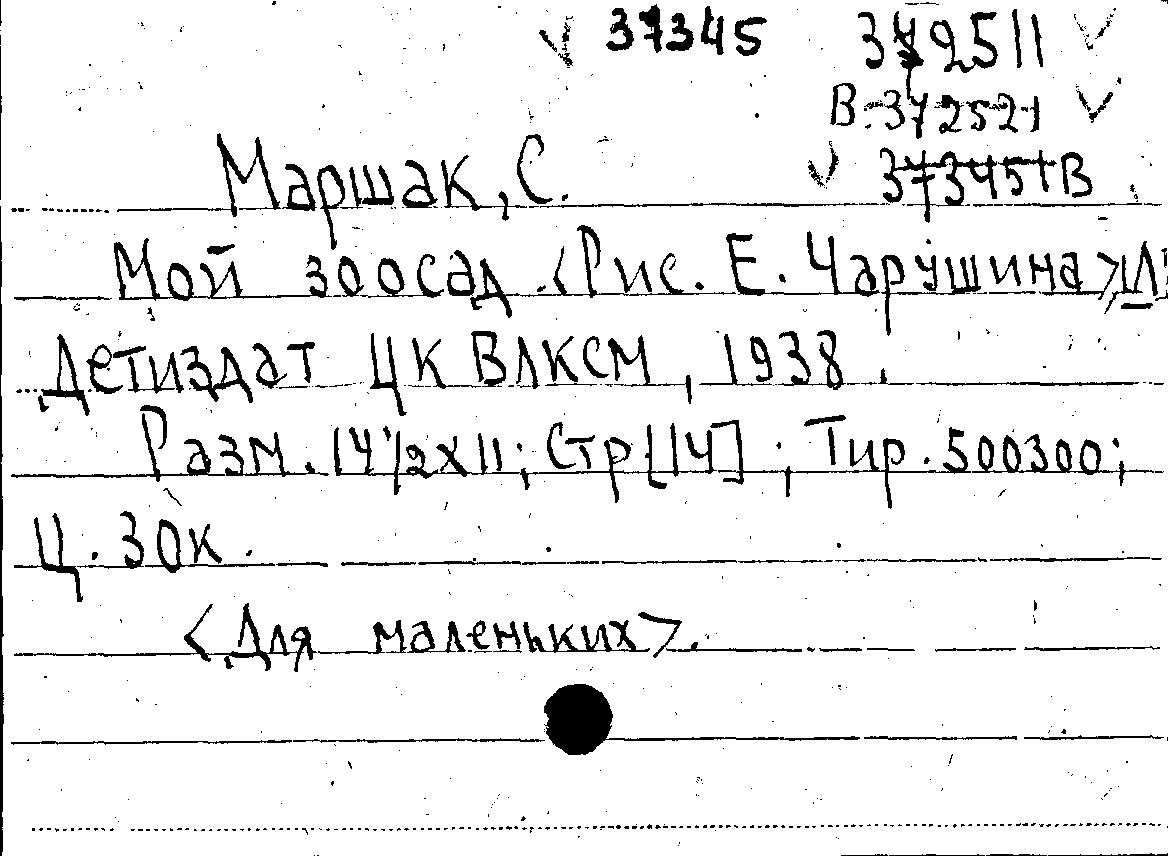 37345 372511
В.372521
373451В
Маршак, С.
Мой зоосад. <Рис. Е. Чарушина> Л
Детиздат ЦК ВЛКСМ, 1938.
Разм. 14 1/2 x 11; Стр [14]; Тир. 500300;
Ц. 30к.
<Для маленьких>.